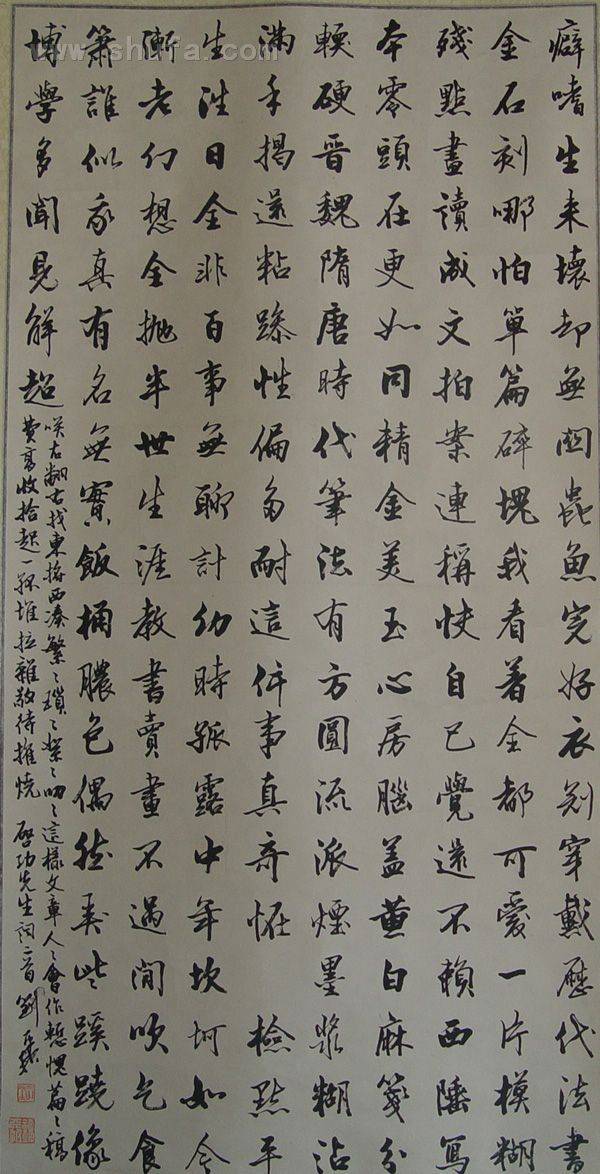 癖嗜生来壞却無関蟲魚完好衣冠穿戴歷代法書
金石刻哪怕單篇碎塊我看着全都可愛一片模糊
殘點畫讀成文拍案連稱快自己覺還不賴西陲寫
本零頭在更如同精金美玉心房腦蓋黄白麻箋分
輭硬晋魏隋唐時代筆法有方圓流派煙墨漿糊沾
滿手揭還粘躁性偏多耐這件事真奇怪 檢點平
生往日全非百事無聊計幼時孤露中年坎坷如今
漸老幻想全抛半世生涯教書賣畫不過閒吹乞食
簫誰似我真有名無實飯桶膿包偶然弄些蹊蹺像
博學多聞見解超
笑左翻右找東拚西凑繁々瑣々絮々叨々這樣文章人々會作慙愧篇々稿
費高收拾起一孤堆拉雜敬待摧燒 啓功先生詞二首 劉